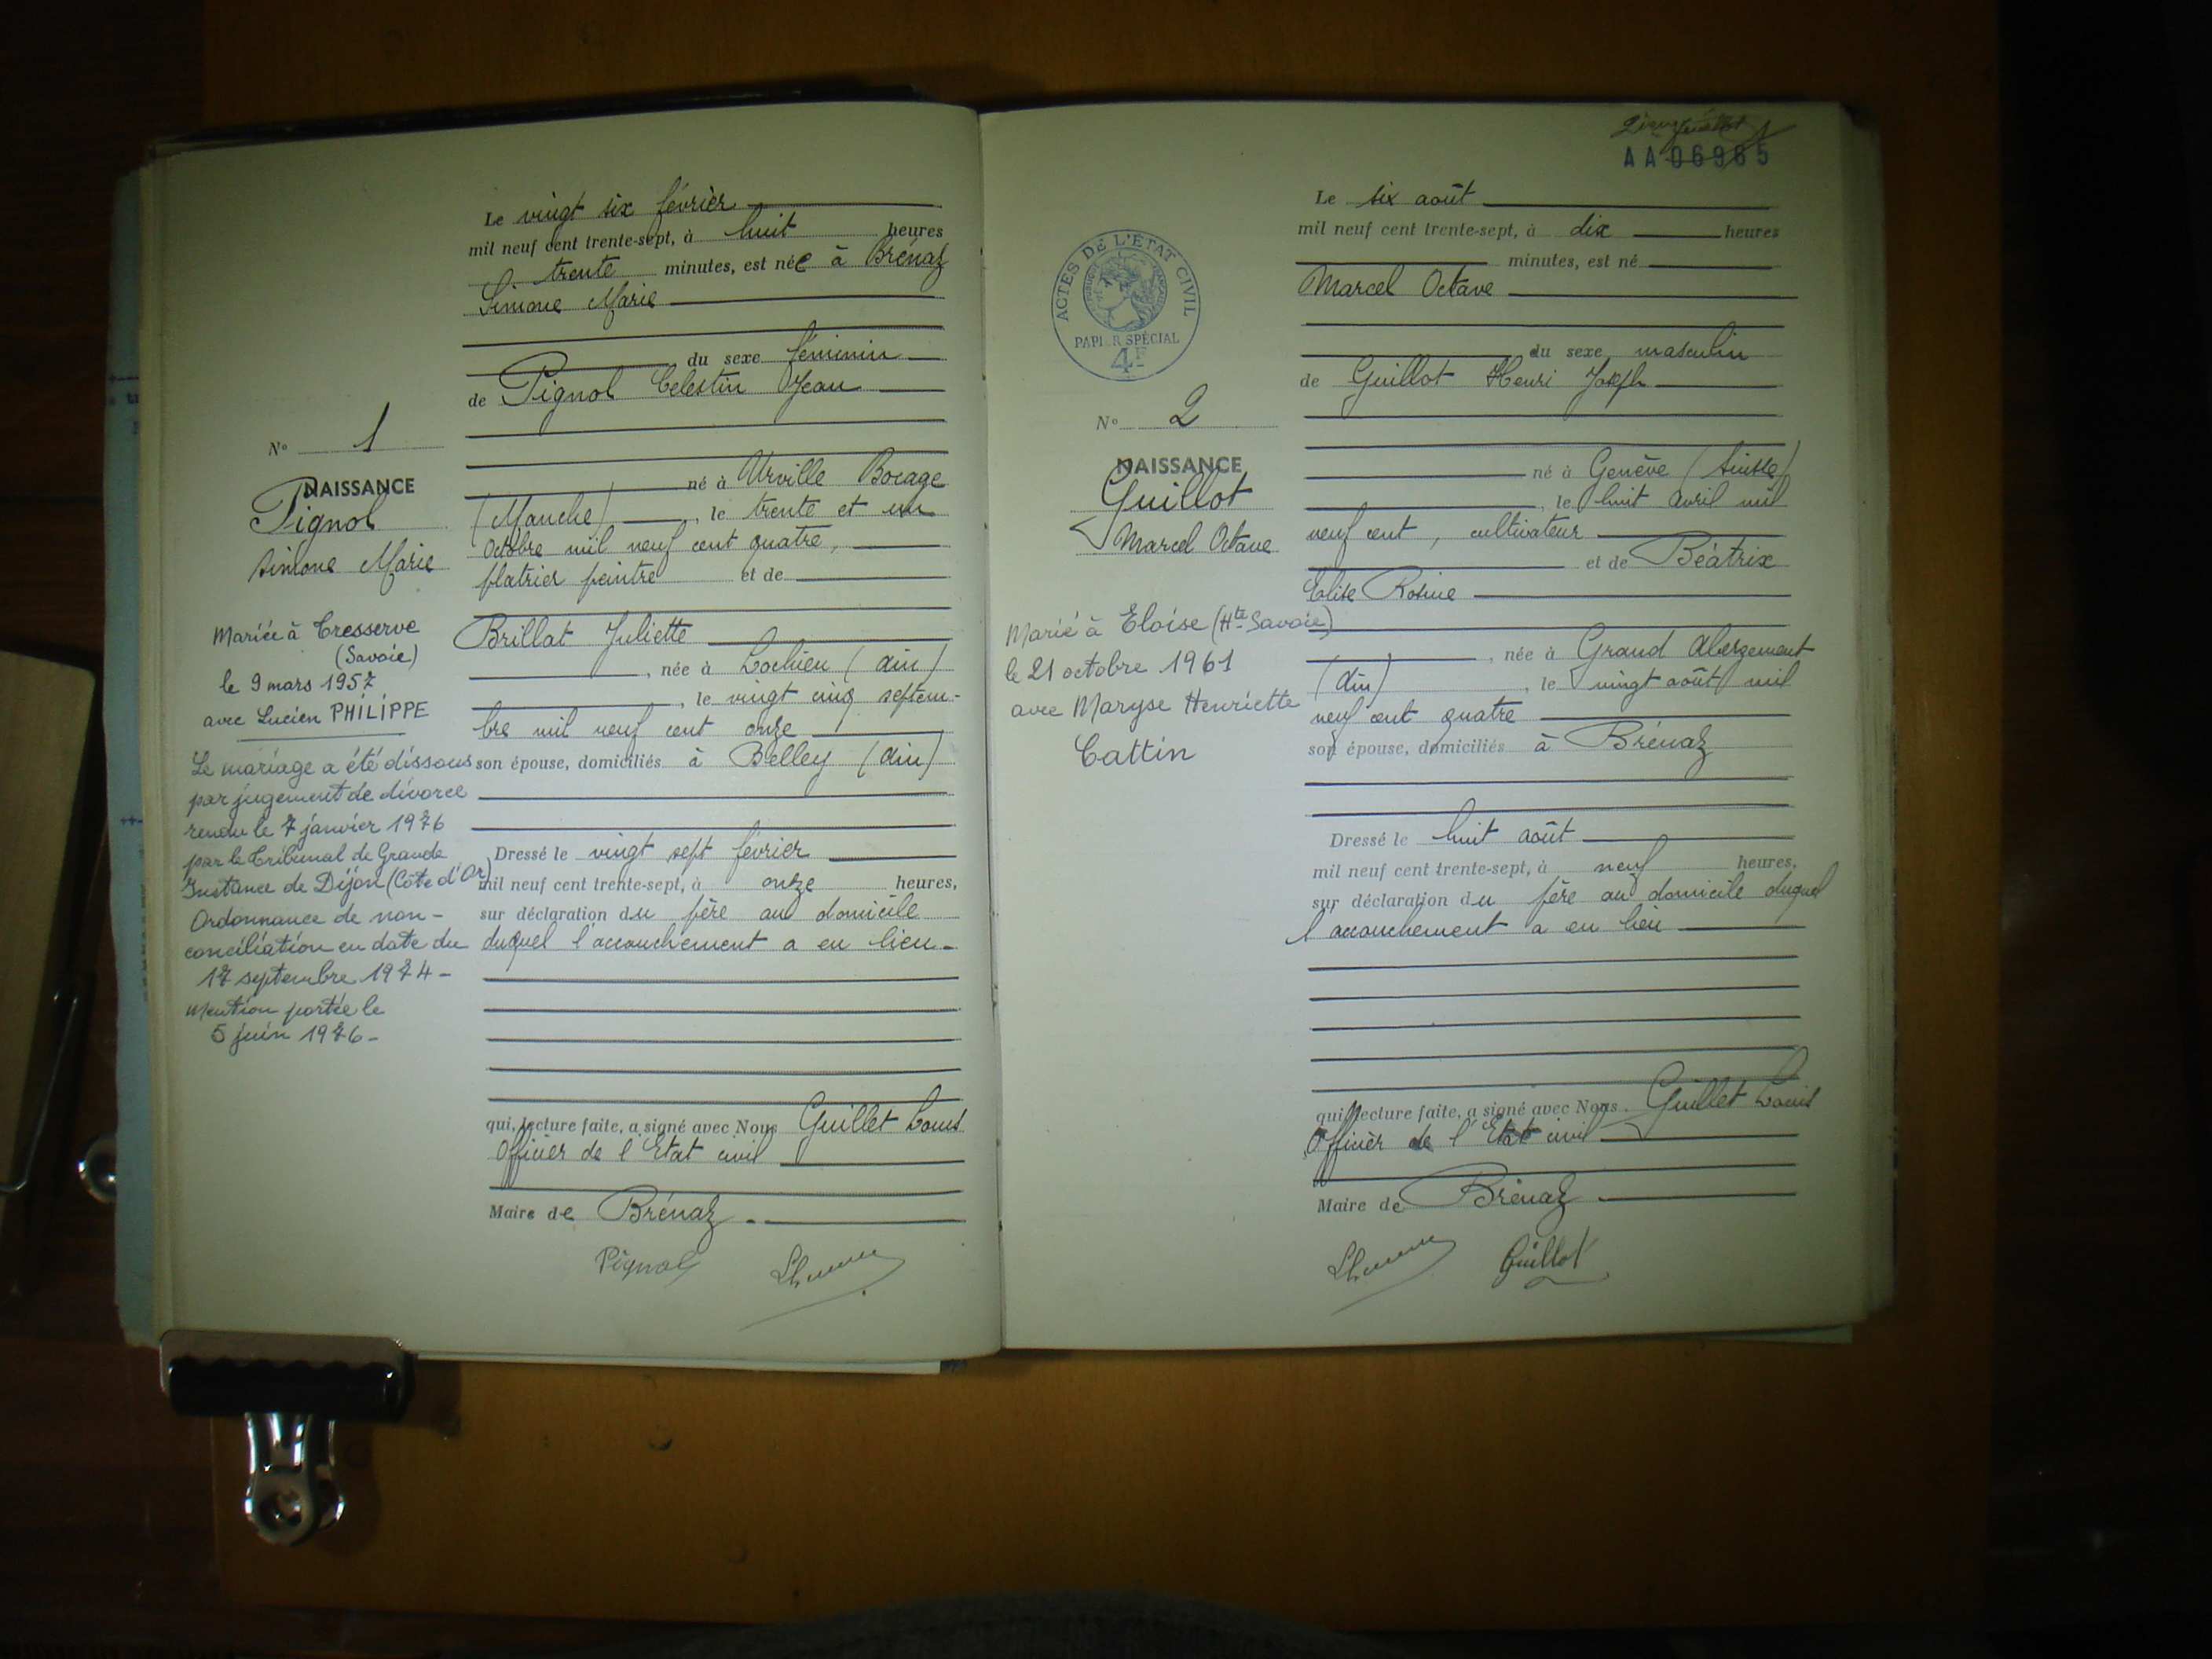 Le vingt six février
mil neuf cent trente-sept, à huit heures
trente minutes, est née à Brénaz
Simone Marie
du sexe féminin
de Pignol Celestin Jean
N° 1
NAISSANCE
Pignol
Simone Marie
né à Urville Bocage
(Manche), le trente et un
Octobre mil neuf cent quatre,
platrier peintre et de
Brillat Juliette
, née à Lochieu (Ain)
, le vingt cinq septem-
bre mil neuf cent onze
son épouse, domiciliés à Belley (Ain)
Mariée à Tresserve
(Savoie)
le 9 mars 1957
avec Lucien PHILIPPE
Le mariage a été dissous
par jugement de divorce
rendu le 7 janvier 1976
par le Tribunal de Grande
Instance de Dijon (Côte d'Or)
Ordonnance de non-
conciliation en date du
17 septembre 1974 -
Mention portée le
5 juin 1976 -
Dressé le vingt sept février
mil neuf cent trente-sept, à onze heures,
sur déclaration du père au domicile
duquel l'accouchement a eu lieu -
qui, lecture faite, a signé avec Nous Guillet Louis
Officier de l'Etat civil
Maire de Brénaz.
Pignol
AA06965
ACTES DE L'ÉTAT CIVIL
PAPIER SPÉCIAL
4F
Le six août
mil neuf cent trente-sept, à dix heures
minutes, est né
Marcel Octave
du sexe masculin
de Guillot Henri Joseph
N° 2
NAISSANCE
Guillot
Marcel Octave
né à Genève (Suisse)
, le huit Avril mil
neuf cent, cultivateur
et de Béatrix
Elise Rosine
, née à Grand Abergement
(Ain), le vingt août mil
neuf cent quatre
son épouse, domiciliés à Brénaz
Marié à Eloise (Hte-Savoie)
le 21 octobre 1961
avec Maryse Henriette
Cattin
Dressé le huit août
mil neuf cent trente-sept, à neuf heures,
sur déclaration du père au domicile duquel
l'accouchement a eu lieu
qui, lecture faite, a signé avec Nous Guillet Louis
Officier de l'Etat civil
Maire de Brénaz
Guillot